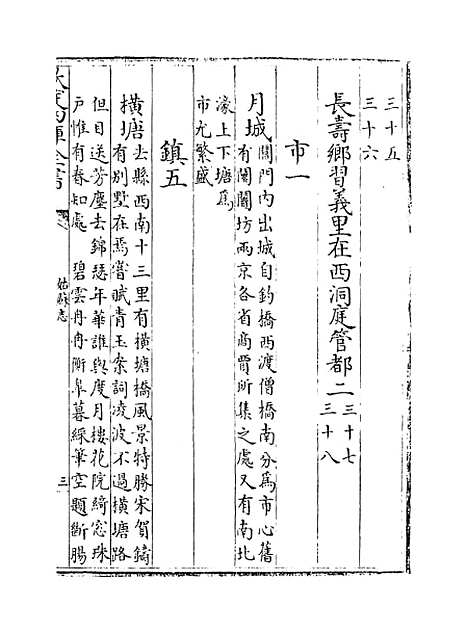 三十五
三十六
長壽鄉習義里在西洞庭管都二
三十七
三十八
市一
月城
閶門內出城自釣橋西渡僧橋南分爲市心舊
有閶闔坊兩京各省商賈所集之處又有南北
濠上下塘爲
市尤繁盛
鎮五
橫塘
去縣西南十三里有橫塘橋風景特勝宋賀鑄
有別墅在焉嘗賦青玉案詞凌波不過橫塘路
但目送芳塵去錦瑟年華誰與度月樓花院綺窓珠
戶惟有春知處 碧雲冉冉蘅臯暮綵筆空題斷腸
姑蘇志
三